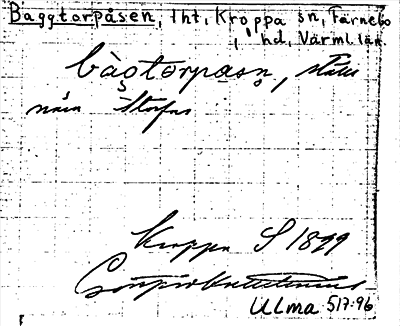 Baggtorpåsen, tht, Kroppa sn, Färnebo
hd, Värml. län.
bàgtorpasn, 
nära
Kroppa S 1899
Ulma 517:96